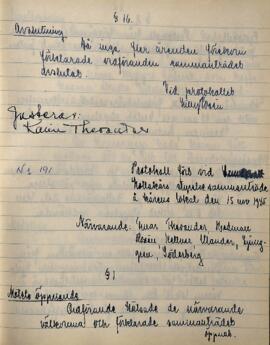 § 16.
Avslutning
Då inga fler ärenden förekom
förklarade ordföranden sammanträdet
avslutat.
Vid protokollet
Justeras:
Karin Thesander
No 191
Protokoll fört vid
styrelsesammanträde
å kårens lokal den 15 nov 1945
Närvarande: Thesander, Hedman
Kettner, Ulander, Ljung-
gren, Söderberg
§ 1
Mötets öppnande
Ordförande hälsade de närvarande
välkomna och förklarade sammanträdet
öppnat.